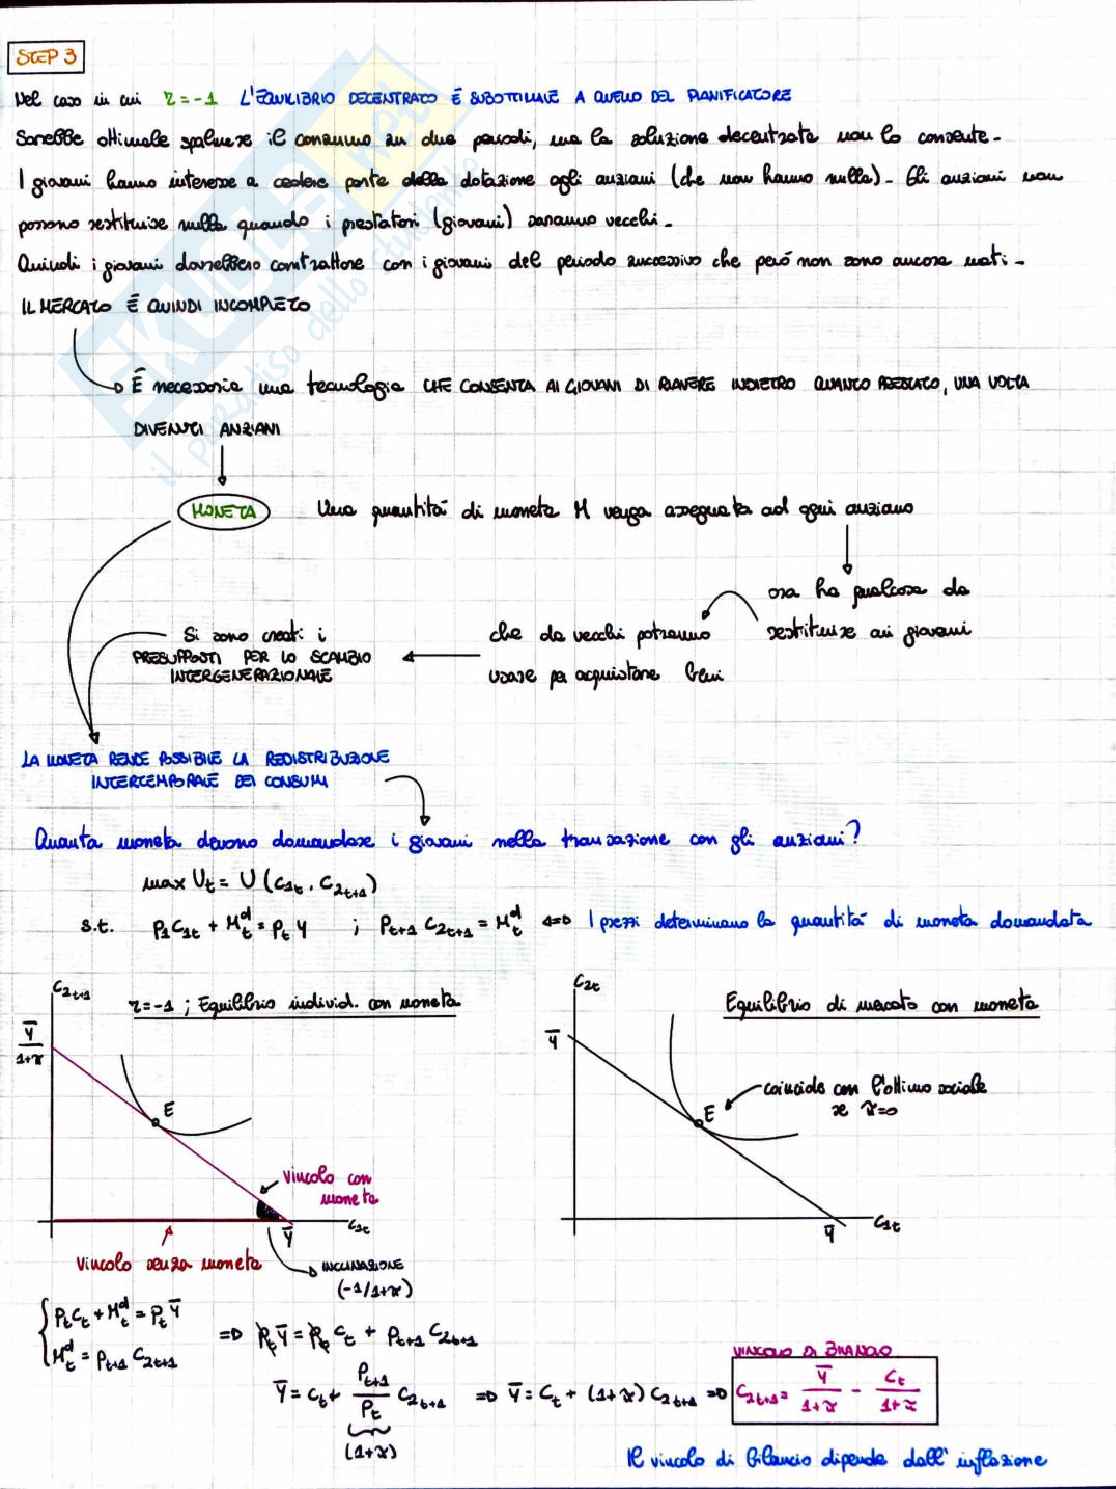 STEP 3
Nel caso in cui r=-1 L'EQUILIBRIO DECENTRATO É SUBOTTIMALE A QUELLO DEL PIANIFICATORE
Sarebbe ottimale spalmare il consumo su due periodi, ma la soluzione decentrata non lo consente.
I giovani hanno interesse a cedere parte della dotazione agli anziani (che non hanno nulla). Gli anziani non
possono restituire nulla quando i prestatori (giovani) saranno vecchi.
Quindi i giovani dovrebbero contrattare con i giovani del periodo successivo che peró non sono ancora nati.
IL MERCATO É QUINDI INCOMPLETO
É necessaria una tecnologia CHE CONSENTA AI GIOVANI DI RIAVERE INDIETRO QUANTO PRESTATO, UNA VOLTA
DIVENUTI ANZIANI
MONETA Una quantitá di moneta M venga assegnata ad ogni anziano
ora ha qualcosa da
restituire ai giovani
che da vecchi potranno
usare per acquistare beni
Si sono creati i
PRESUPPOSTI PER LO SCAMBIO
INTERGENERAZIONALE
LA MONETA RENDE POSSIBILE LA REDISTRIBUZIONE
INTERTEMPORALE DEI CONSUMI
Quanta moneta devono domandare i giovani nella transazione con gli anziani?
max U_t = U (C_1t, C_2t+1)
s.t. P_1 C_1t + M_t^d = P_t Y ; P_t+1 C_2t+1 = M_t^d <=> I prezzi determinano la quantitá di moneta domandata
C_2t+1
r=-1 ; Equilibrio individ. con moneta
Ȳ/(1+π)
E
vincolo con
moneta
C_1t
Ȳ
vincolo senza moneta
INCLINAZIONE
(-1/1+π)
C_2t
Equilibrio di mercato con moneta
Ȳ
coincide con l'ottimo sociale
se π=0
E
C_1t
Ȳ
{ P_t C_t + M_t^d = P_t Ȳ
M_t^d = P_t+1 C_2t+1
=> P_t Ȳ = P_t C_t + P_t+1 C_2t+1
VINCOLO DI BILANCIO
Ȳ = C_t + P_t+1/P_t C_2t+1 => Ȳ = C_t + (1+π) C_2t+1 => C_2t+1 = Ȳ/(1+π) - C_t/(1+π)
(1+π)
Il vincolo di bilancio dipende dall'inflazione
EKUBE
il paradiso dello studente